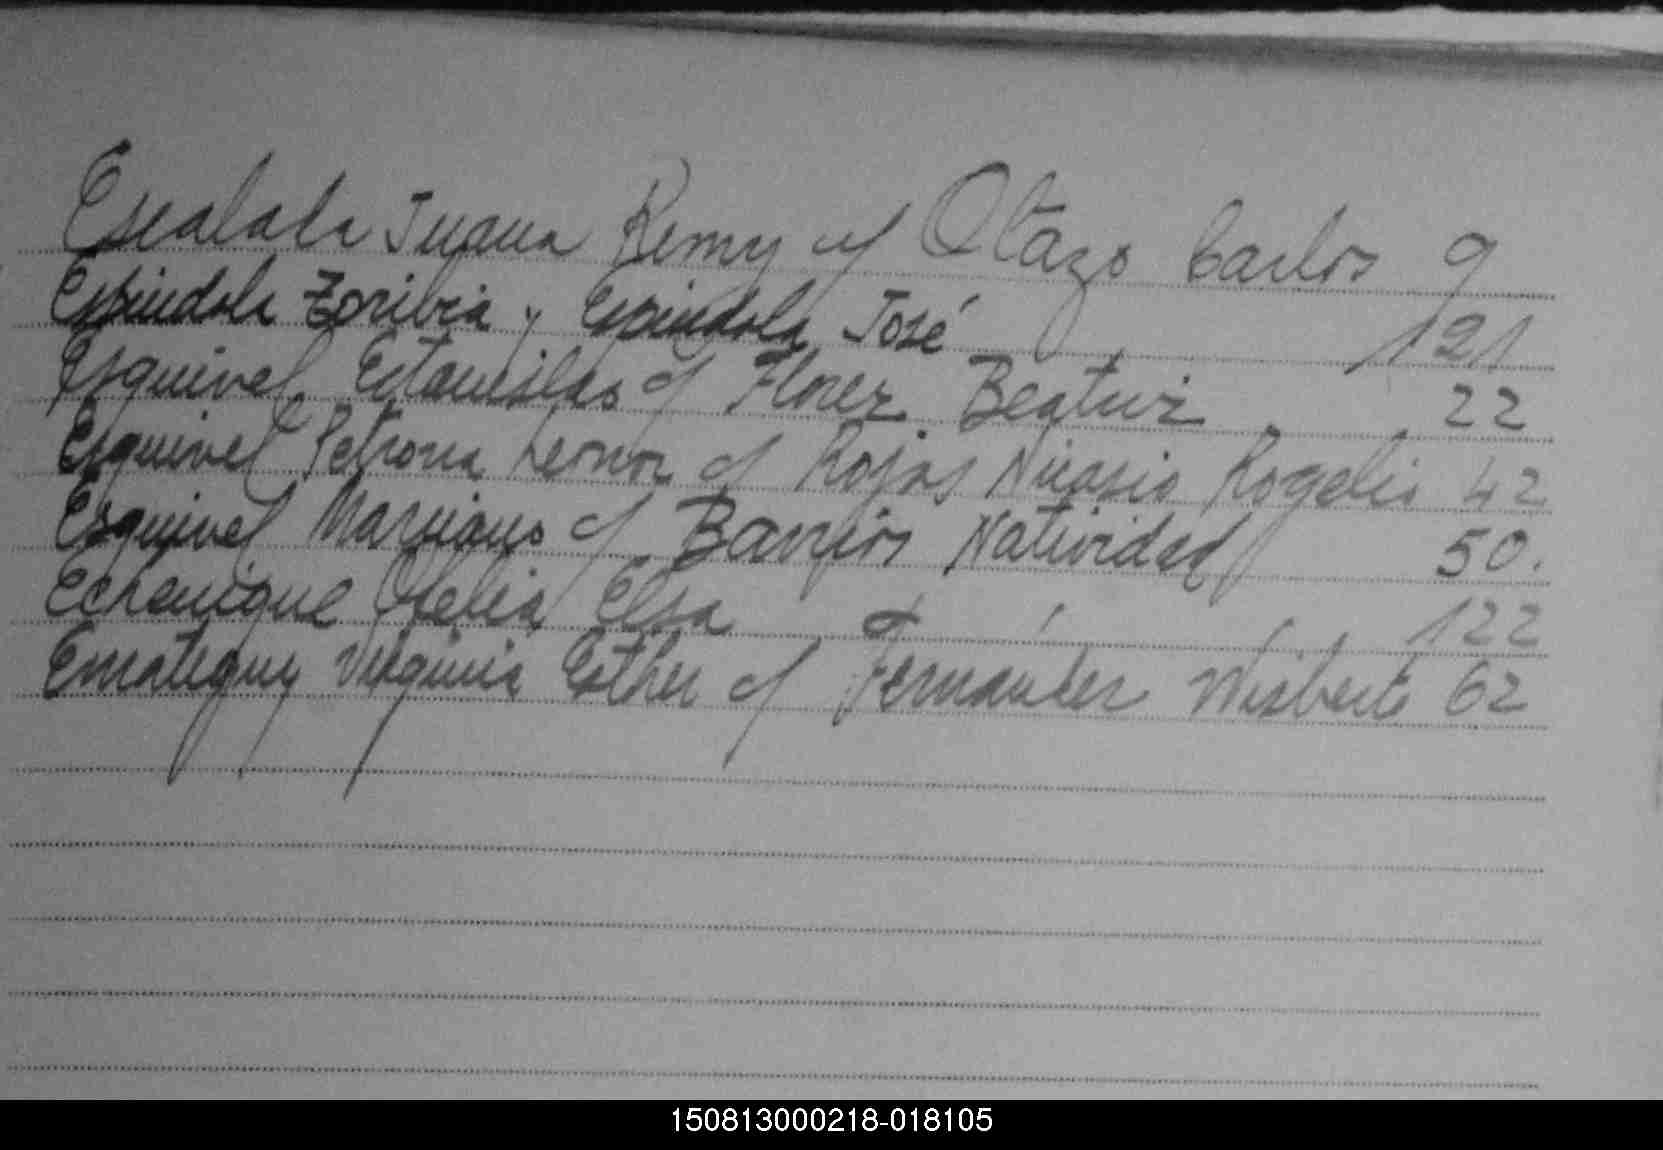 Escalada Juana Remy c/ Otazo Carlos 9
Espindola Zoribia y Espindola José 121
Esquivel Estanislao c/ Florez Beatriz 22
Esquivel Petrona Leonor c/ Rojas Nicasio Rogelio 42
Esquivel Marciano c/ Barrios Natividad 50.
Echenique Ofelia Elsa 122
Virginia Esther c/ Fernandez 62
150813000218-018105